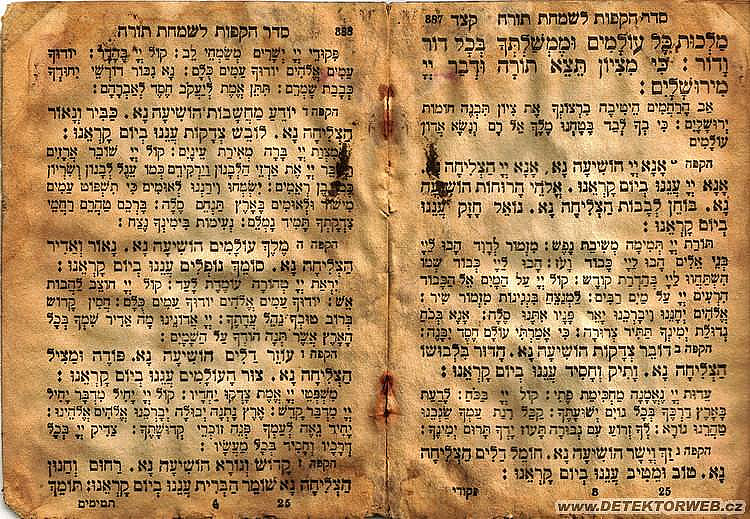 סדר הקפות לשמחת תורה קצד 887
מלכות כל עולמים וממשלתך בכל דור
ודור : כי מציון תצא תורה ודבר יי
מירושלים :
אב הרחמים היטיבה ברצונך את ציון תבנה חומות
ירושלים : כי בך לבד בטחנו מלך אל רם ונשא אדון
עולמים
הקפה אנא יי הושיעה נא, אנא יי הצליחה
אנא יי עננו ביום קראנו. אלהי הרוחות הושיעה
נא. בוחן לבבות הצליחה נא. גואל חזק עננו
ביום קראנו :
תורת יי תמימה משיבת נפש : מזמור לדוד הבו ליי
בני אלים הבו ליי כבוד ועז : הבו ליי כבוד שמו
השתחוו ליי בהדרת קודש : קול יי על המים אל הכבוד
הרעים יי על מים רבים : למנצח בנגינות מזמור שיר :
אלהים יחננו ויברכנו יאר פניו אתנו סלה : אנא בכח
גדולת ימינך תתיר צרורה : כי אמרתי עולם חסד יבנה :
הקפה ב דובר צדקות הושיעה נא. הדור בלבושו
הצליחה נא. ותיק וחסיד עננו ביום קראנו :
עדות יי נאמנה מחכימת פתי : קול יי בכח : לדעת
בארץ דרכך בכל גוים ישועתך : קבל רנת עמך שגבנו
טהרנו נורא : לך זרוע עם גבורה תעוז ידך תרום ימינך :
הקפה ג זך וישר הושיעה נא. חומל דלים הצליחה
נא. טוב ומטיב עננו ביום קראנו :
25 8 פקודי
סדר הקפות לשמחת תורה 888
פקודי יי ישרים משמחי לב : קול יי בהדר : יודוך
עמים אלהים יודוך עמים כלם : נא גבור דורשי יחודך
כבבת שמרם : תתן אמת ליעקב חסד לאברהם :
הקפה ד יודע מחשבות הושיעה נא. כביר ונאור
הצליחה נא. לובש צדקות עננו ביום קראנו :
מצות יי ברה מאירת עינים : קול יי שובר ארזים
וישבר יי את ארזי הלבנון וירקידם כמו עגל לבנון ושריון
כמו בן ראמים : ישמחו וירננו לאומים כי תשפוט עמים
מישור ולאומים בארץ תנחם סלה : ברכם טהרם רחמי
צדקתך תמיד גמלם : נעימות בימינך נצח :
הקפה ה מלך עולמים הושיעה נא. נאור ואדיר
הצליחה נא. סומך נופלים עננו ביום קראנו :
יראת יי טהורה עומדת לעד : קול יי חוצב להבות
אש : יודוך עמים אלהים יודוך עמים כלם : חסין קדוש
ברוב טובך נהל עדתך : יי אדונינו מה אדיר שמך בכל
הארץ אשר תנה הודך על השמים :
הקפה ו עוזר דלים הושיעה נא. פודה ומציל
הצליחה נא. צור העולמים עננו ביום קראנו :
משפטי יי אמת צדקו יחדיו : קול יי יחיל מדבר יחיל
יי מדבר קדש : ארץ נתנה יבולה יברכנו אלהים אלהינו :
יחיד גאה לעמך פנה זוכרי קדושתך : צדיק יי בכל
דרכיו וחסיד בכל מעשיו :
הקפה ז קדוש ונורא הושיעה נא. רחום וחנון
הצליחה נא שומר הברית עננו ביום קראנו : תומך
25 תמימים
www.DETEKTORWEB.cz